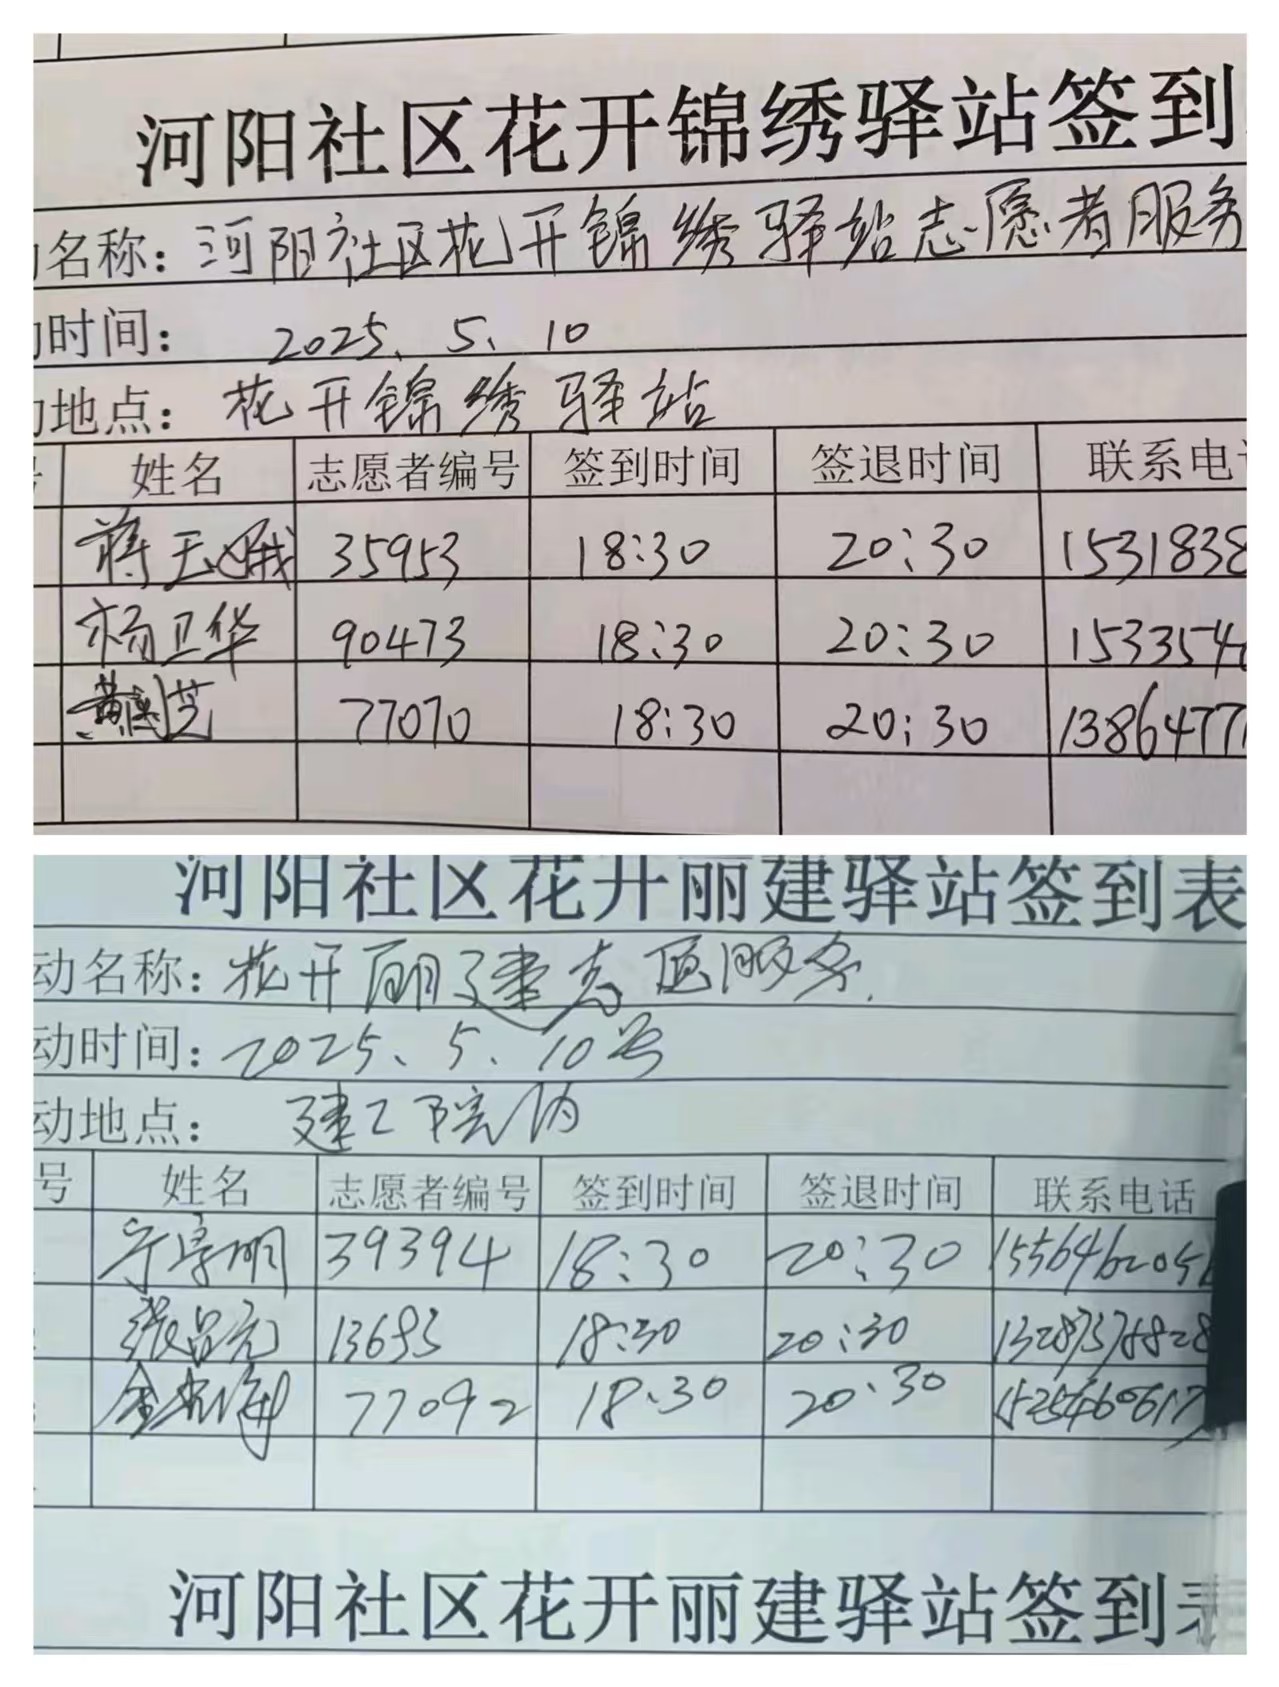 河阳社区花开锦绣驿站签到
名称：河阳社区花开锦绣驿站志愿者服务
时间： 2025、5、10
地点： 花开锦绣驿站
姓名 志愿者编号 签到时间 签退时间 联系电
蒋玉娥 35953 18:30 20:30 1531838
杨卫华 90473 18:30 20:30 153354
芝 77070 18:30 20:30 13864777
河阳社区花开丽建驿站签到表
动名称：花开丽建志愿服务
动时间：2025、5、10号
动地点： 建工院内
号 姓名 志愿者编号 签到时间 签退时间 联系电话
明 39394 18:30 20:30 1556462051
张吕元 13693 18:30 20:30 13287378828
77092 18:30 20:30 1525460617
河阳社区花开丽建驿站签到表